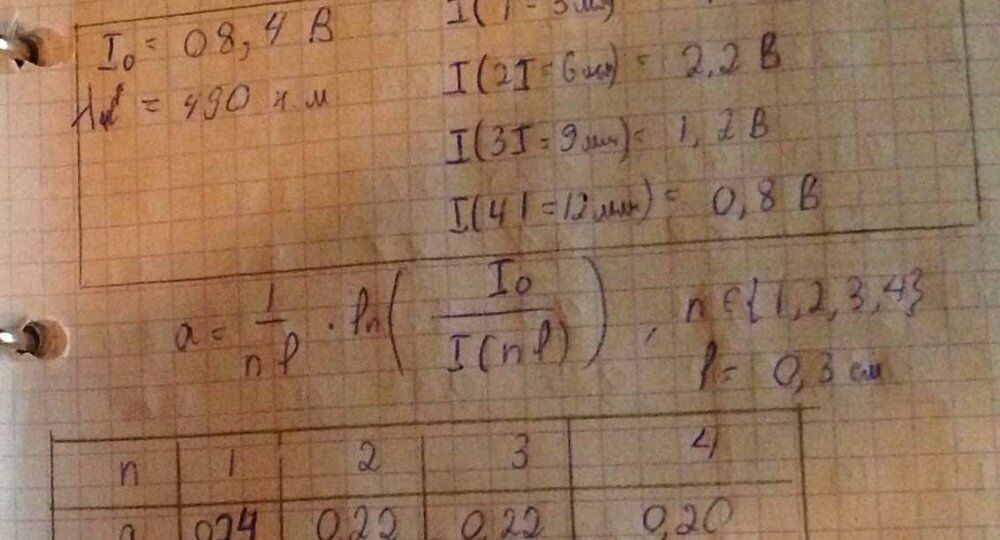 I₀ = 08,4 В
= 490 н.м
I(2I = 6мм) = 2,2 В
I(3I = 9мм) = 1,2 В
I(4I = 12мм) = 0,8 В
a = 1/nl · ln( I₀ / I(nl) ), n ∈ {1,2,3,4}
l = 0,3 см
n 1 2 3 4
0,24 0,22 0,22 0,20